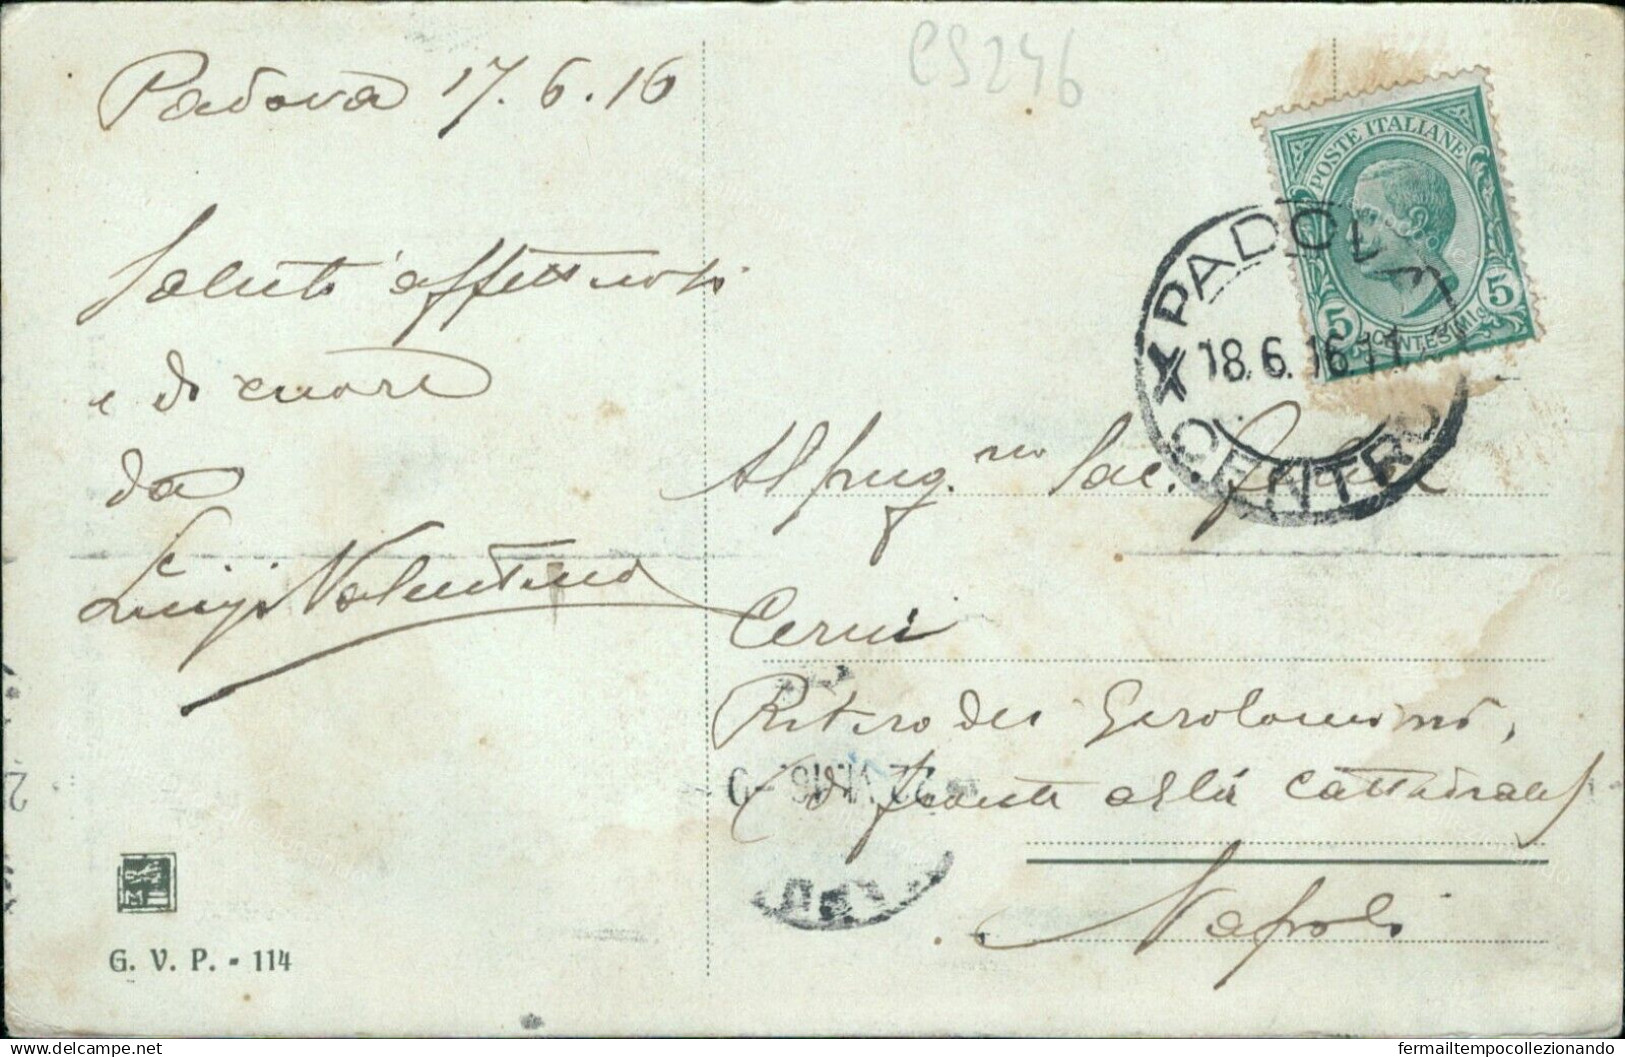 CS246
Padova 17.6.16
Saluti affettuosi
e di cuore
da
Luigi Valentino
POSTE ITALIANE
5 CENTESIMI 5
PADOVA
18.6.16 11
CENTRO
Al preg.mo Sac.
Cerui
Ritiro dei Gerolomini,
(di fronte alla Cattedrale)
Napoli
G. V. P. - 114
delcampe.net
fermailtempocollezionando